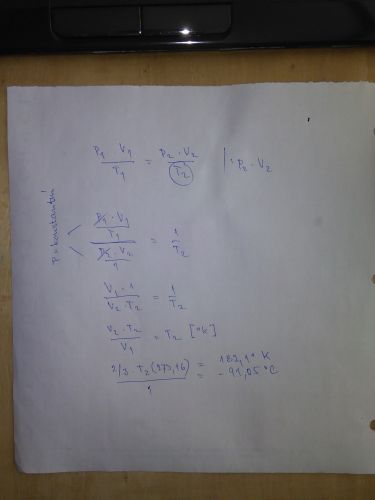 p1 · V1 / T1 = p2 · V2 / T2 | : p2 · V2
p = konstantní
p1 · V1 / T1 / p2 · V2 / 1 = 1 / T2
V1 · 1 / V2 · T2 = 1 / T2
V2 · T2 / V1 = T2 [°K]
2/3 · T2 (273,16) / 1 = 182,1° K
= - 91,05 °C